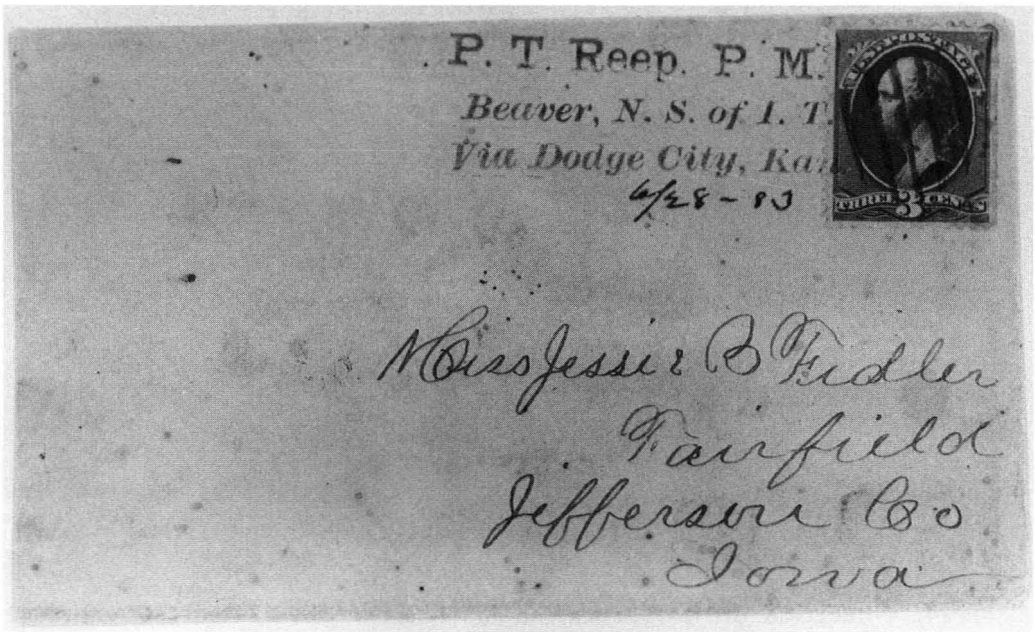 P. T. Reep. P. M.
Beaver, N. S. of I. T.
Via Dodge City, Kan
6/28-83
U.S. POSTAGE
THREE 3 CENTS
Miss Jessie B Fidler
Fairfield
Jefferson Co
Iowa